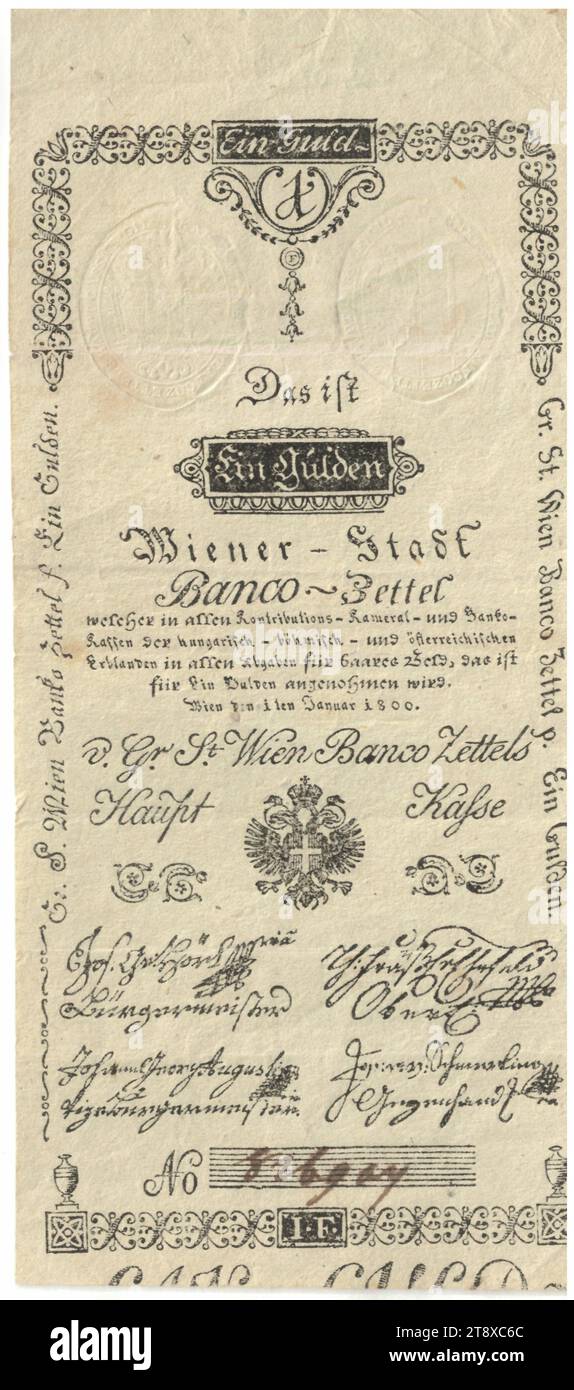 Ein Guld~
1
Das ist
Ein Gulden
Wiener - Stadt
Banco ~ Zettel
welcher in allen Kontributions - Kameral - und Banko-
Kassen der hungarisch - böhmisch - und österreichischen
Erblanden in allen Abgaben für baares Geld, das ist
für Ein Gulden angenohmen wird.
Wien den 1ten Januar 1800.
v. Gr. St. Wien Banco Zettels
Haupt Kasse
Gr. S. Wien Banko Zettel f. Ein Gulden.
Gr. St. Wien Banco Zettel p. Ein Gulden.
Jos.
Bürgermeister
Johann Georg Augusti
Oberei
v. Schmerling
Gegenhand
No
1 F.
alamy
Image ID: 2T8XC6C
www.alamy.com